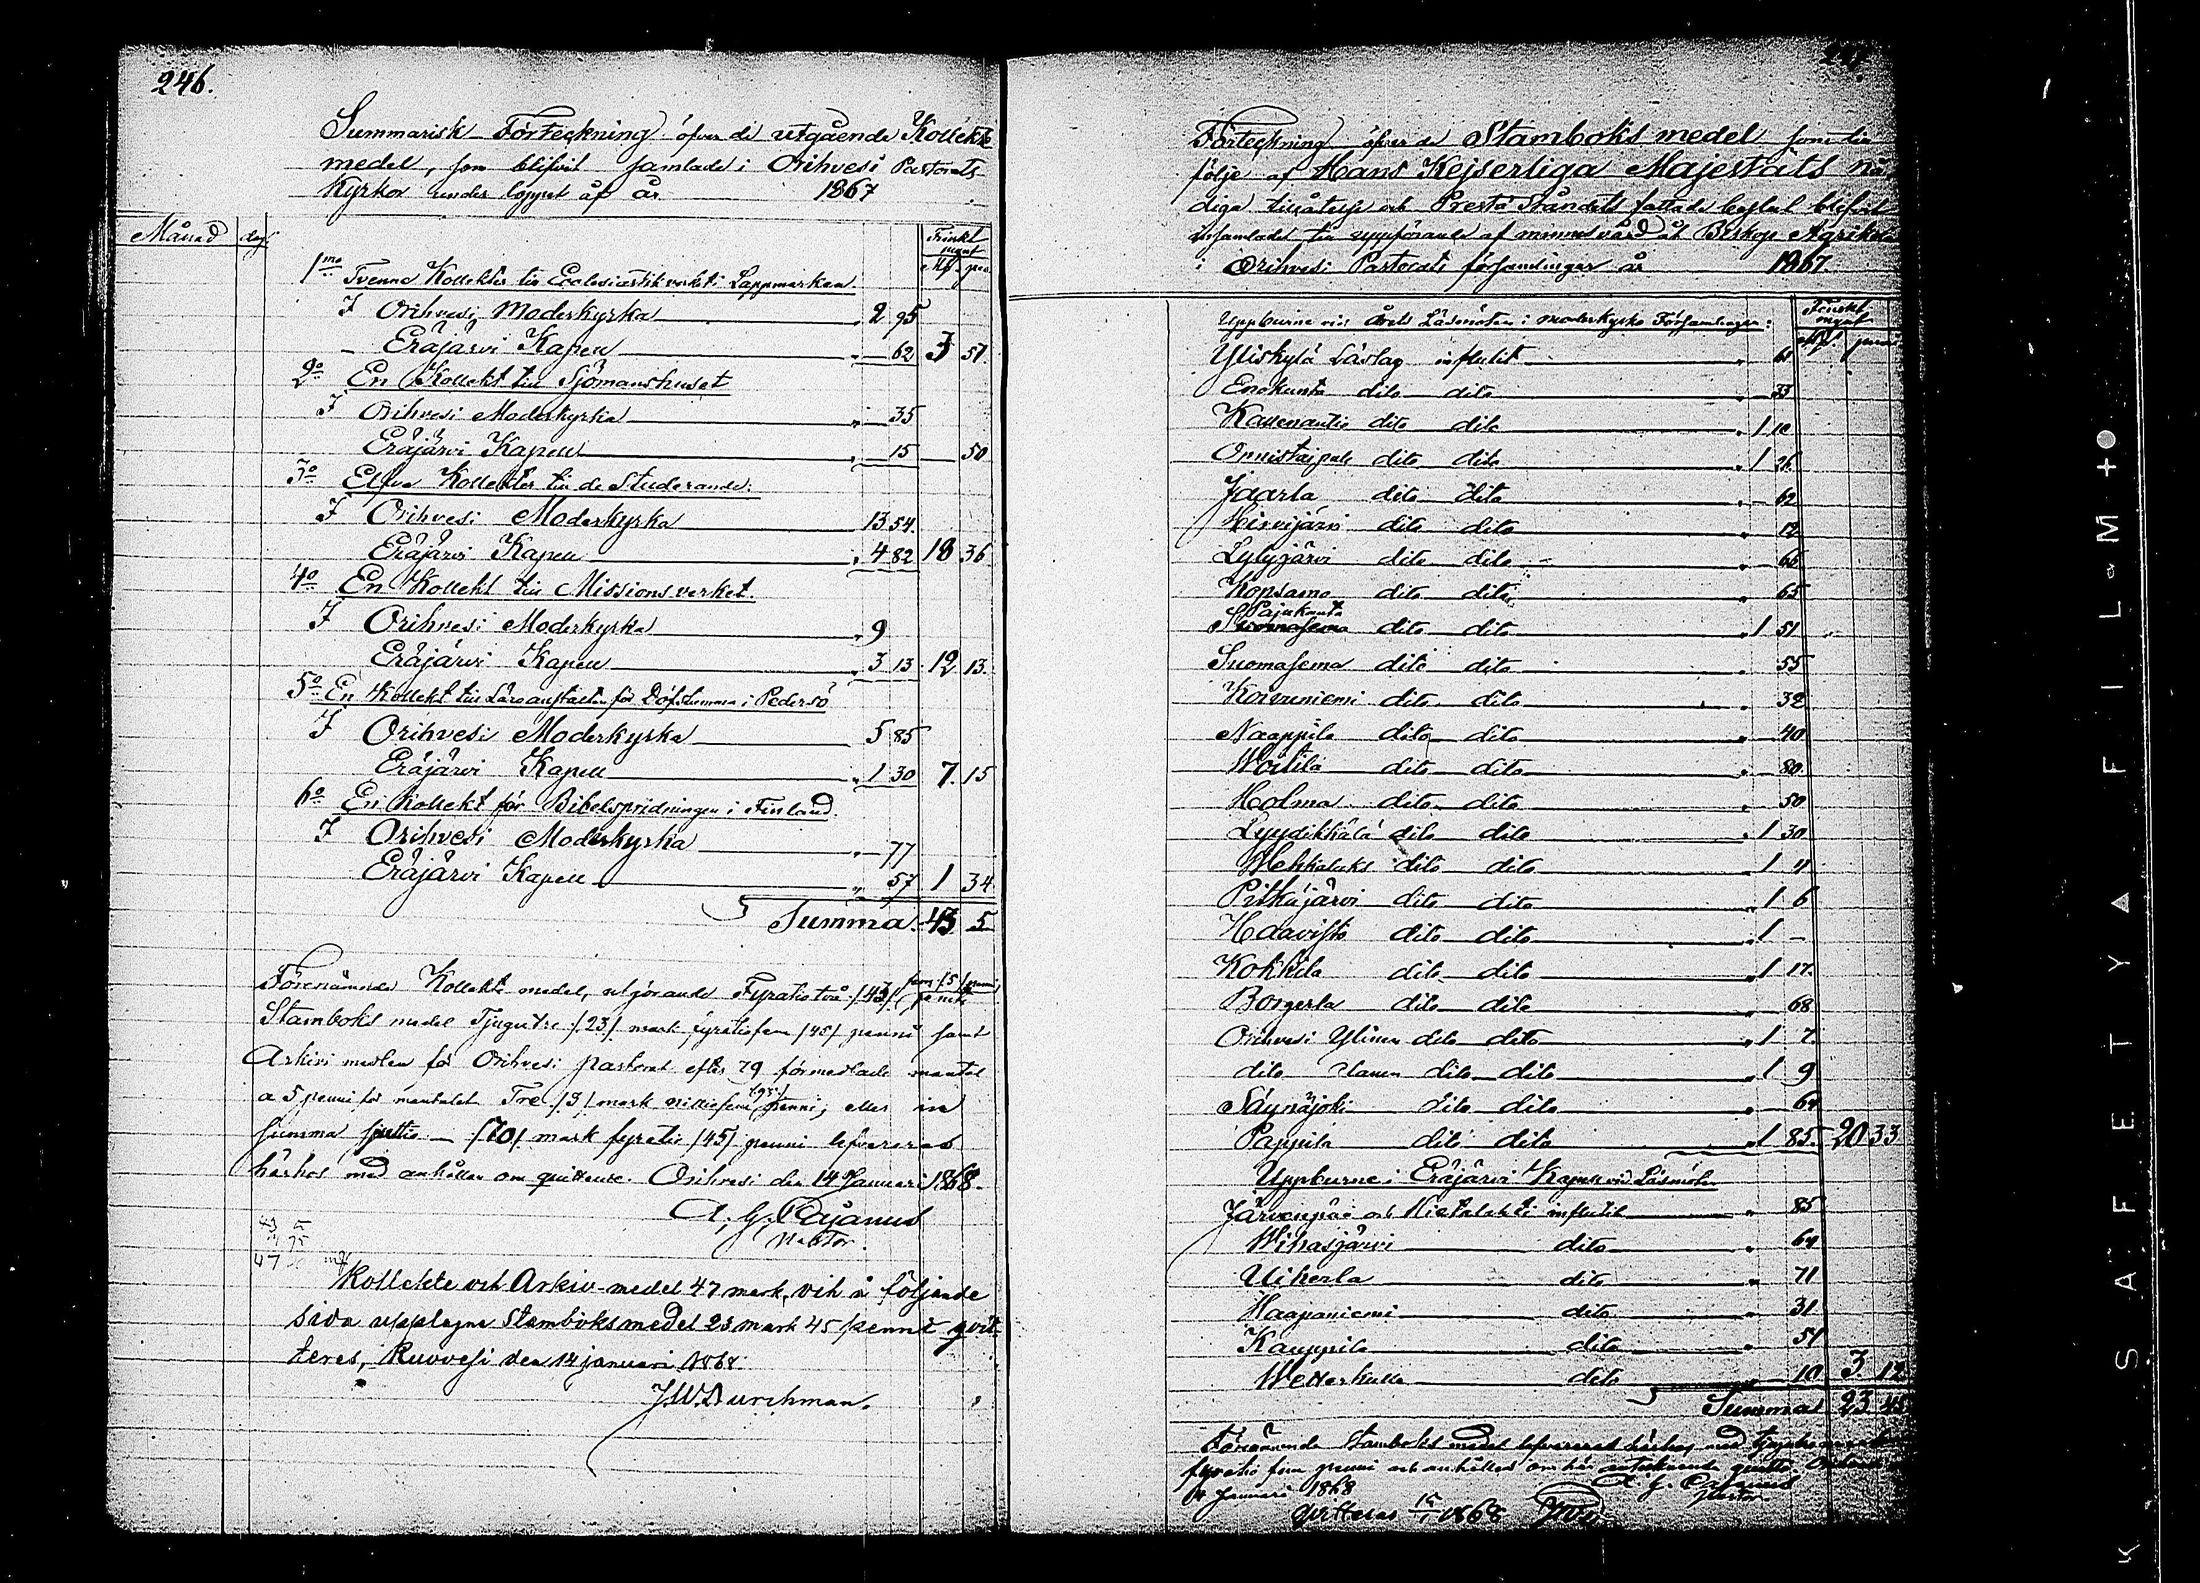 246.
Summarisk Förteckning öfver de utgående Kollekte
medel, som blifvit samlade i Orihvesi Pastorats
Kyrkor under loppet af år 1867
Månad dag. Finskt mynt
Mk. pen.
1mo Tvenne Kollekter till Ecclesiastikverket i Lappmarken.
I Orihvesi Moderkyrka 2 95
Eräjärvi Kapell " 62 3 57.
2o En Kollekt till Sjömanshuset
I Orihvesi Moderkyrka " 35
Eräjärvi Kapell " 15 50
3o Elfva Kollekter till de Studerande.
I Orihvesi Moderkyrka 13 54.
Eräjärvi Kapell " 4 82 18 36
4o En Kollekt till Missionsverket.
I Orihvesi Moderkyrka " 9
Eräjärvi Kapell " 3 13 12 13.
5o En Kollekt till Läroanstalten för Döfstumma i Pedersö
I Orihvesi Moderkyrka 5 85
Eräjärvi Kapell " 1 30 7. 15
6o En Kollekt för Bibelspridningen i Finland.
I Orihvesi Moderkyrka " 77
Eräjärvi Kapell " 57 1 34.
Summa. 43 5
Förenämnde Kollekte medel, utgörande Fyratiotvå /43/
Stamboks medel Tjugutre /23/ mark fyratiofem /45/ penni samt
Arkivi medlen för Orihvesi pastorat efter 79 förmedlade mantal
a 5 penni för mantalet Tre /3/ mark nittiofem /95/ penni; eller in
summa sjuttio /70/ mark fyratio /45/ penni lefvereras
härhos med anhållan om quittence. Orihvesi den 14 Januari 1868.
A. G. Pajanus
Pastor.
43 5
3 95
47
Kollekte och Arkiv-medel 47 mark, och å följande
sida upptagne Stamboksmedel 23 mark 45 penni qvit-
teres, Ruovesi den 14 januari 1868.
J.W. Durchman.
Förteckning öfver de Stamboks medel som till
följe af Hans Kejserliga Majestäts nå
diga tillåtelse och Presta Ståndets fattade beslut blifvit
insamlade till uppförande af minnesvård åt Biskop Agrikola
i Orihvesi Pastorats församlingar år 1867.
Uppburne vid årets Läsmöten i moderkyrko Församlingen: Finskt mynt
Yliskylä Läslag influtit " 61
Enokunta dito dito " 33
Kallenautio dito dito " 1 10
Onnistaipale dito dito " 1 26
Jaarla dito dito " 62
Hirvijärvi dito dito " 12
Lylyjärvi dito dito " 66
Kopsamo dito dito " 65
Pajukanta
dito dito " 1 51
Suomasema dito dito " 55
Koivuniemi dito dito " 32
Naappila dito dito " 40
Woitila dito dito " 80.
Holma dito dito " 50
Lyydikkälä dito dito " 1 30
Wehkalaks dito dito " 1 4
Pitkäjärvi dito dito " 1 6
Haavisto dito dito " 1 –
Kokkila dito dito " 1 17.
Borgerla dito dito " 68
Orihvesi Ylinen dito dito " 1 7.
dito Alanen dito dito " 1 9
Säynäjoki dito dito " 64
Pappila dito dito " 1 85. 20 33
Uppburne i Eräjärvi Kapell vid Läsmöten
Järvenpää och Hietalahti influtit " 85
Wihasjärvi dito " 64
Uiherla dito " 71
Haapaniemi dito " 31
Kauppila dito " 51
Wetterkulla dito " 10 3. 12
Summa 23 45
Förenämnde Stamboks medel lefvereras härhos med tjugutre mark
fyratio fem penni och anhålles om här
14 Januari 1868 A. G. Pajanus
Pastor
Qvitteras 15/1 1868
K S A F E T Y A F I L M